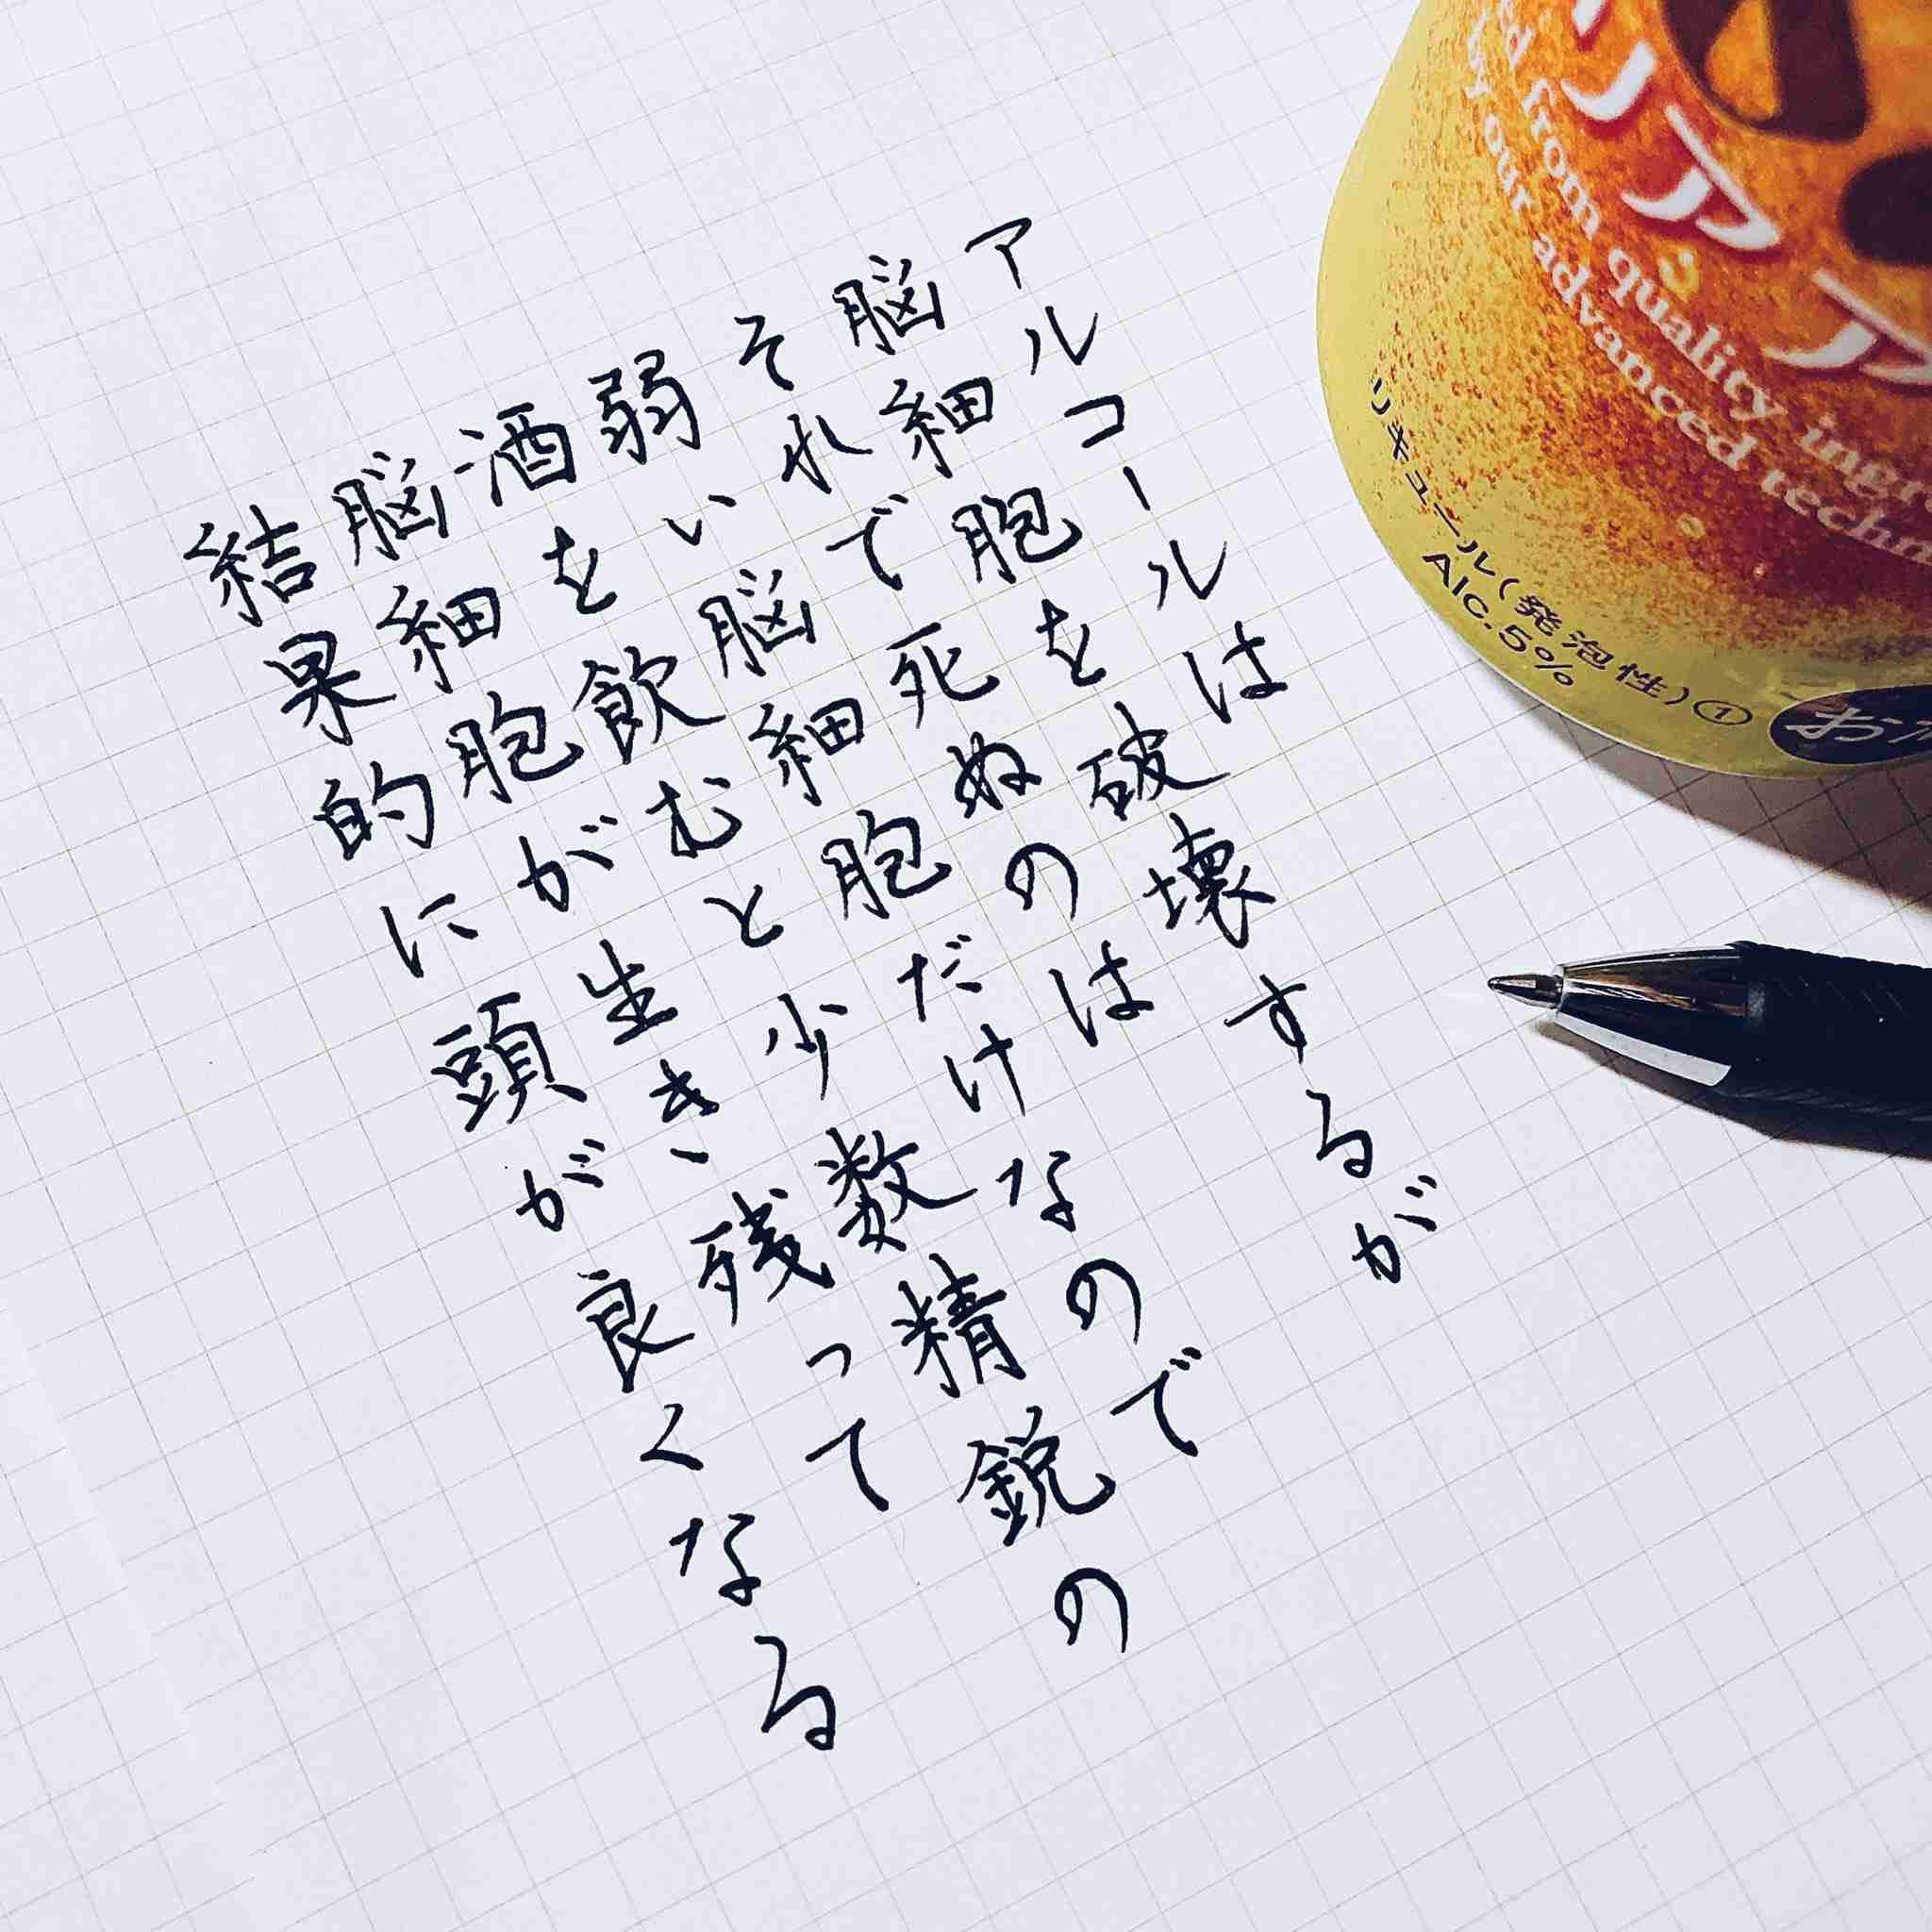 アルコールは
脳細胞を破壊するが
それで死ぬのは
弱い脳細胞だけなので
酒を飲むと少数精鋭の
脳細胞が生き残って
結果的に頭が良くなる
リア
from quality
our advanced
リキュール(発泡性)①
Alc.5%